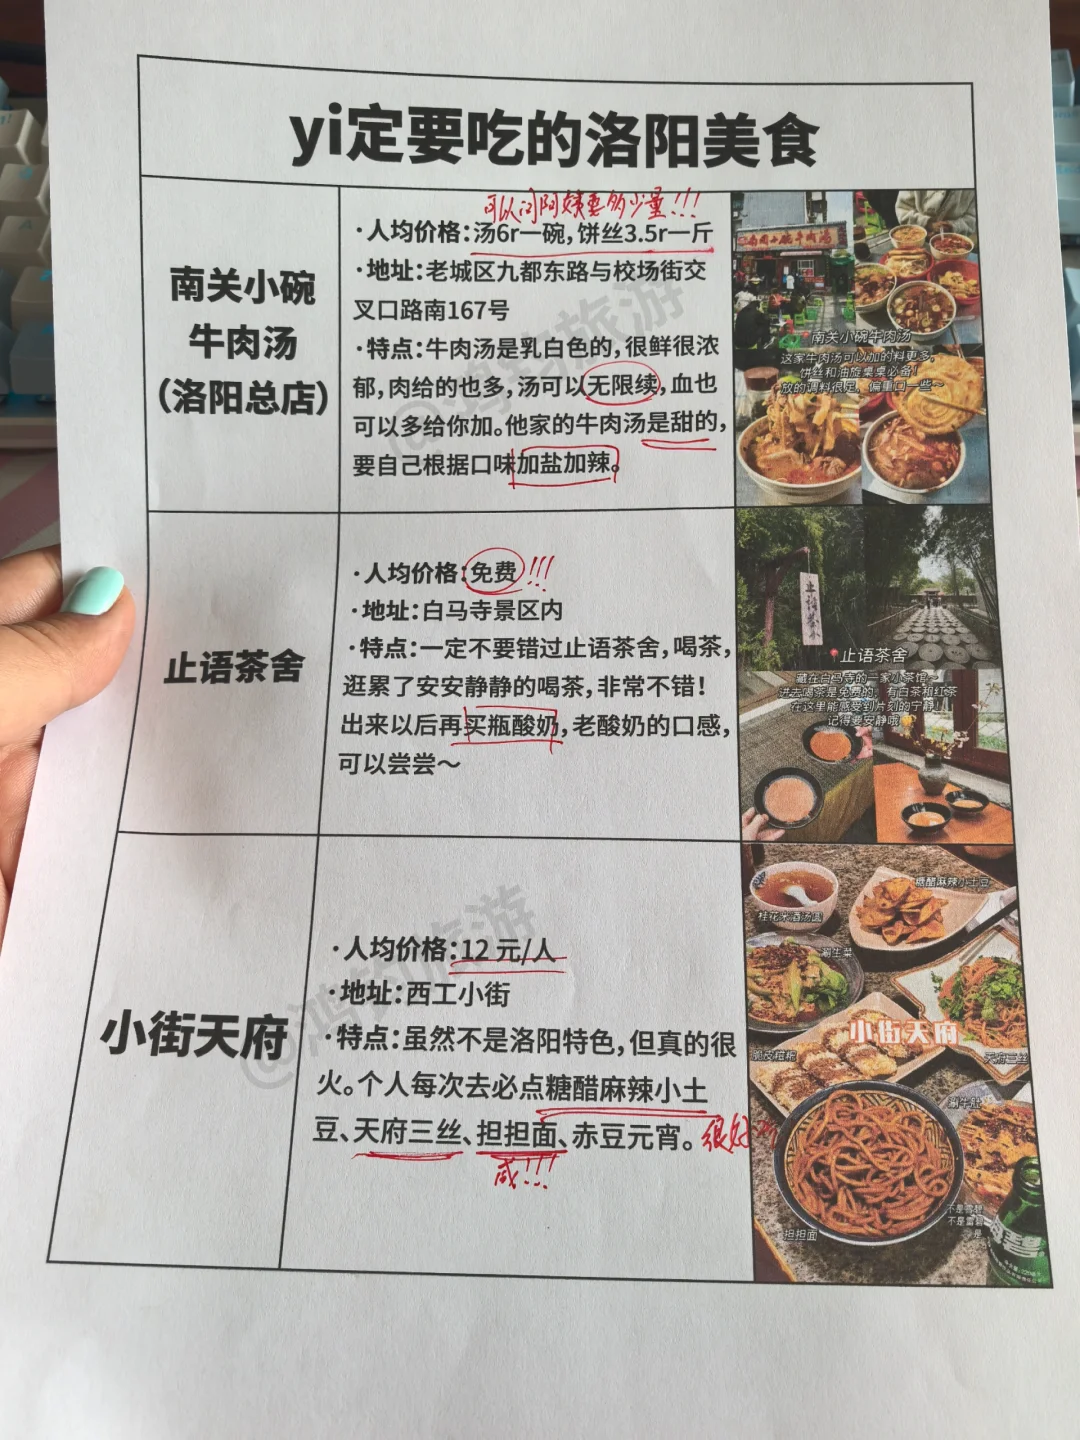 yi定要吃的洛阳美食
南关小碗
牛肉汤
（洛阳总店）
可以问阿姨要多少量!!!
·人均价格：汤6r一碗，饼丝3.5r一斤
·地址：老城区九都东路与校场街交
叉口路南167号
·特点：牛肉汤是乳白色的，很鲜很浓
郁，肉给的也多，汤可以无限续，血也
可以多给你加。他家的牛肉汤是甜的，
要自己根据口味加盐加辣。
南关小碗牛肉汤
南关小碗牛肉汤
这家牛肉汤可以加的料更多，
饼丝和油旋桌桌必备！
放的调料很足，偏重口一些~
止语茶舍
·人均价格：免费!!!
·地址：白马寺景区内
·特点：一定不要错过止语茶舍，喝茶，
逛累了安安静静的喝茶，非常不错！
出来以后再买瓶酸奶，老酸奶的口感，
可以尝尝～
止语茶舍
止语茶舍
藏在白马寺的一家小茶馆~
进去喝茶是免费的，有白茶和红茶
在这里能感受到片刻的宁静！
记得要安静哦
小街天府
·人均价格：12 元/人
·地址：西工小街
·特点：虽然不是洛阳特色，但真的很
火。个人每次去必点糖醋麻辣小土
豆、天府三丝、担担面、赤豆元宵。很好
咸!!!
桂花米酒汤圆
糖醋麻辣小土豆
涮生菜
小街天府
脆皮糍粑
天府三丝
涮牛肚
担担面
不是雪碧
不是雪碧
@鸿钧旅游
@鸿钧旅游